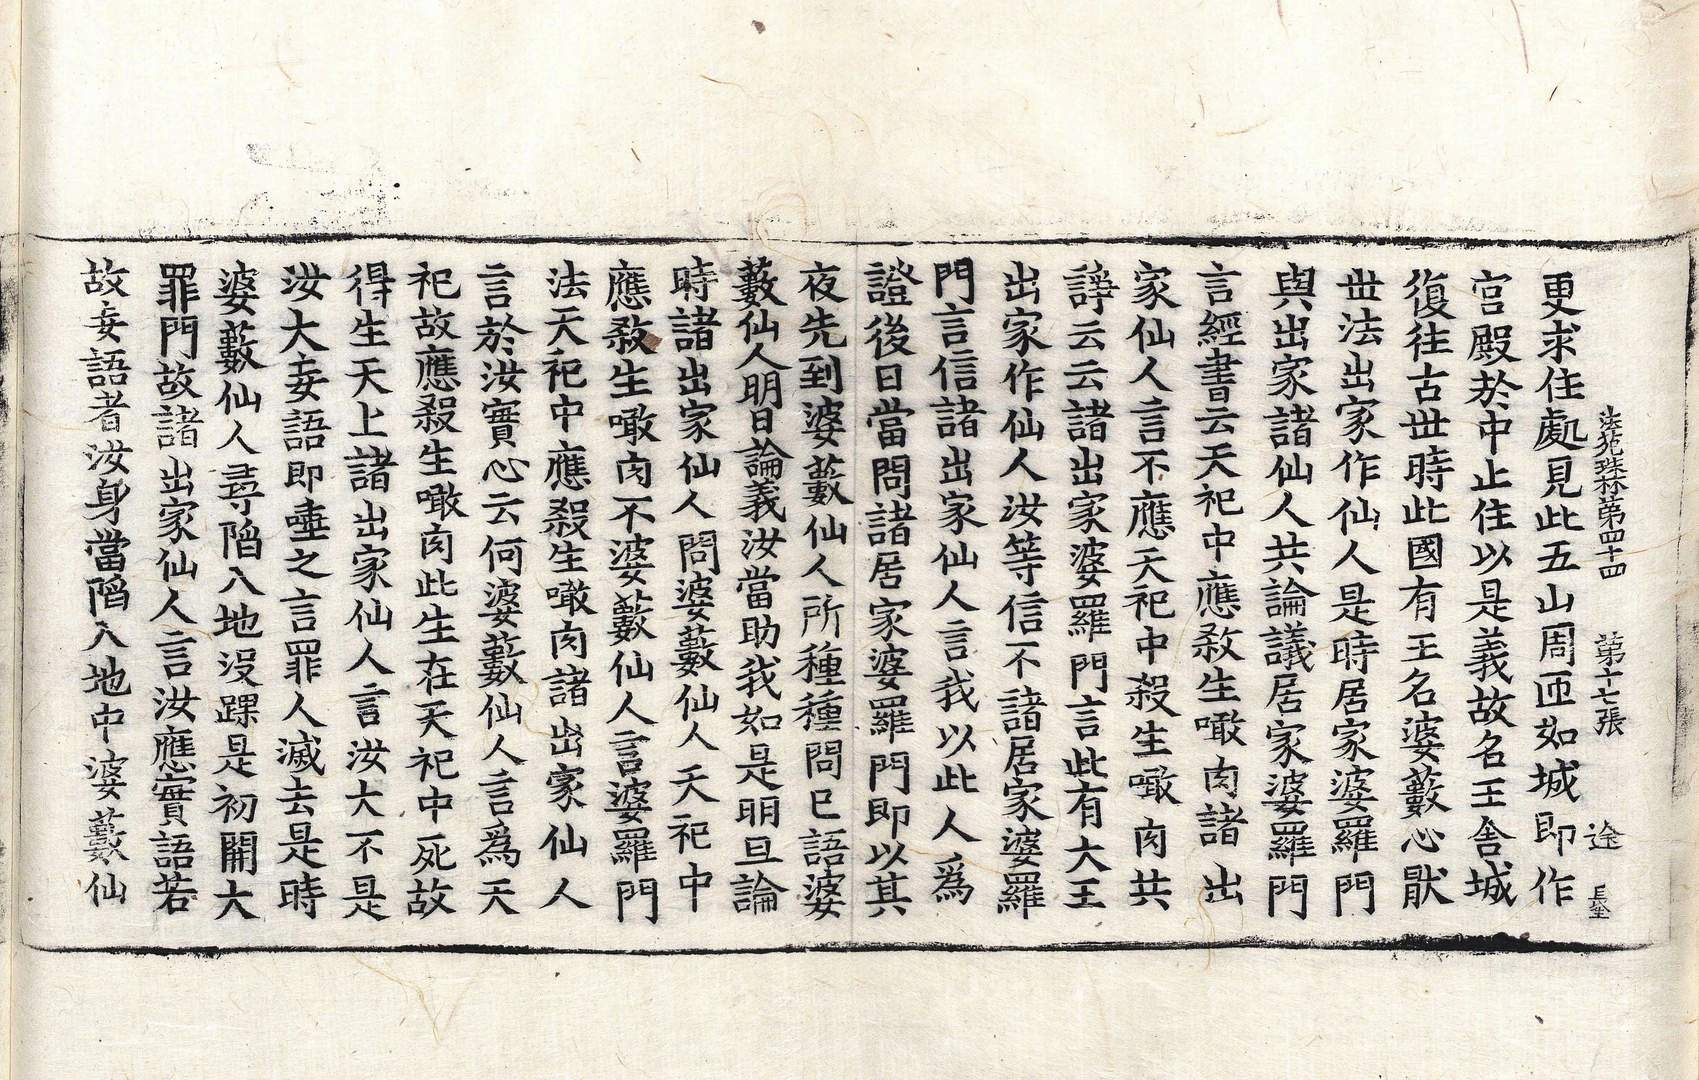 法苑珠林第四十四　第十七張　途
更求住處見此五山周匝如城即作
宮殿於中止住以是義故名王舍城
復往古世時此國有王名婆藪心猒
世法出家作仙人是時居家婆羅門
與出家諸仙人共論議居家婆羅門
言經書云天祀中應殺生噉肉諸出
家仙人言不應天祀中殺生噉肉共
諍云云諸出家婆羅門言此有大王
出家作仙人汝等信不諸居家婆羅
門言信諸出家仙人言我以此人爲
證後日當問諸居家婆羅門即以其
夜先到婆藪仙人所種種問已語婆
藪仙人明日論義汝當助我如是明旦論
時諸出家仙人問婆藪仙人天祀中
應殺生噉肉不婆藪仙人言婆羅門
法天祀中應殺生噉肉諸出家仙人
言於汝實心云何婆藪仙人言爲天
祀故應殺生噉肉此生在天祀中死故
得生天上諸出家仙人言汝大不是
汝大妄語即唾之言罪人滅去是時
婆藪仙人尋陷入地没踝是初開大
罪門故諸出家仙人言汝應實語若
故妄語者汝身當陷入地中婆藪仙